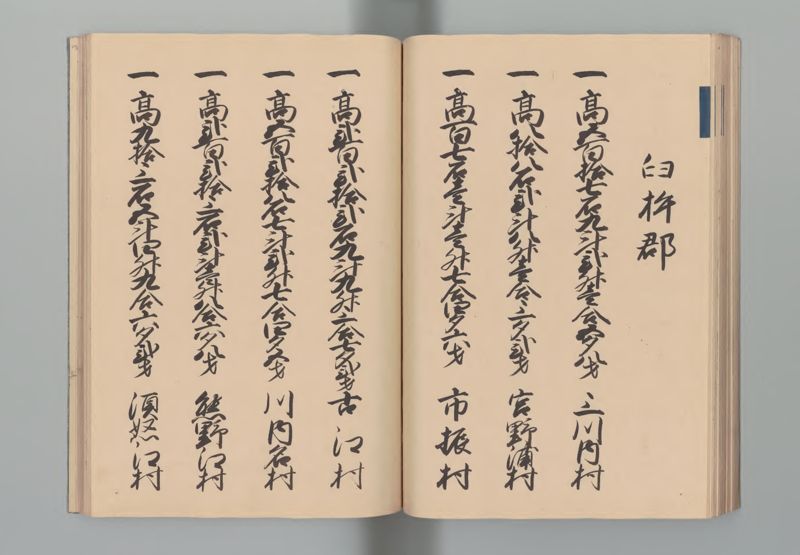 臼杵郡
一高五百拾七石九斗弐升壱合五夕八才 三川内村
一高八拾八石弐斗八升壱合三夕弐才 宮野浦村
一高百七石壱斗壱升七合四夕六才 市振村
一高弐百弐拾弐石九斗九升三合七夕弐才 古江村
一高五百弐拾八石七斗弐升七合四夕五才 川内名村
一高弐百弐拾三石弐斗壱升八合六夕八才 熊野江村
一高九拾三石五斗四升九合六夕弐才 須怒江村